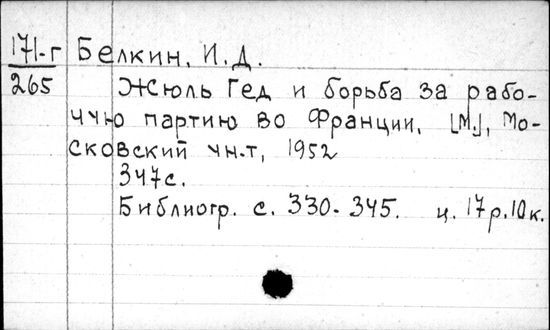 171-г Белкин, И.Д.
265 Жюль Гед и борьба за рабо-
чую партию во Франции, [М.], Мо-
сковский ун-т, 1952
347с.
Библиогр. с. 330-345. ц. 17р.10к.